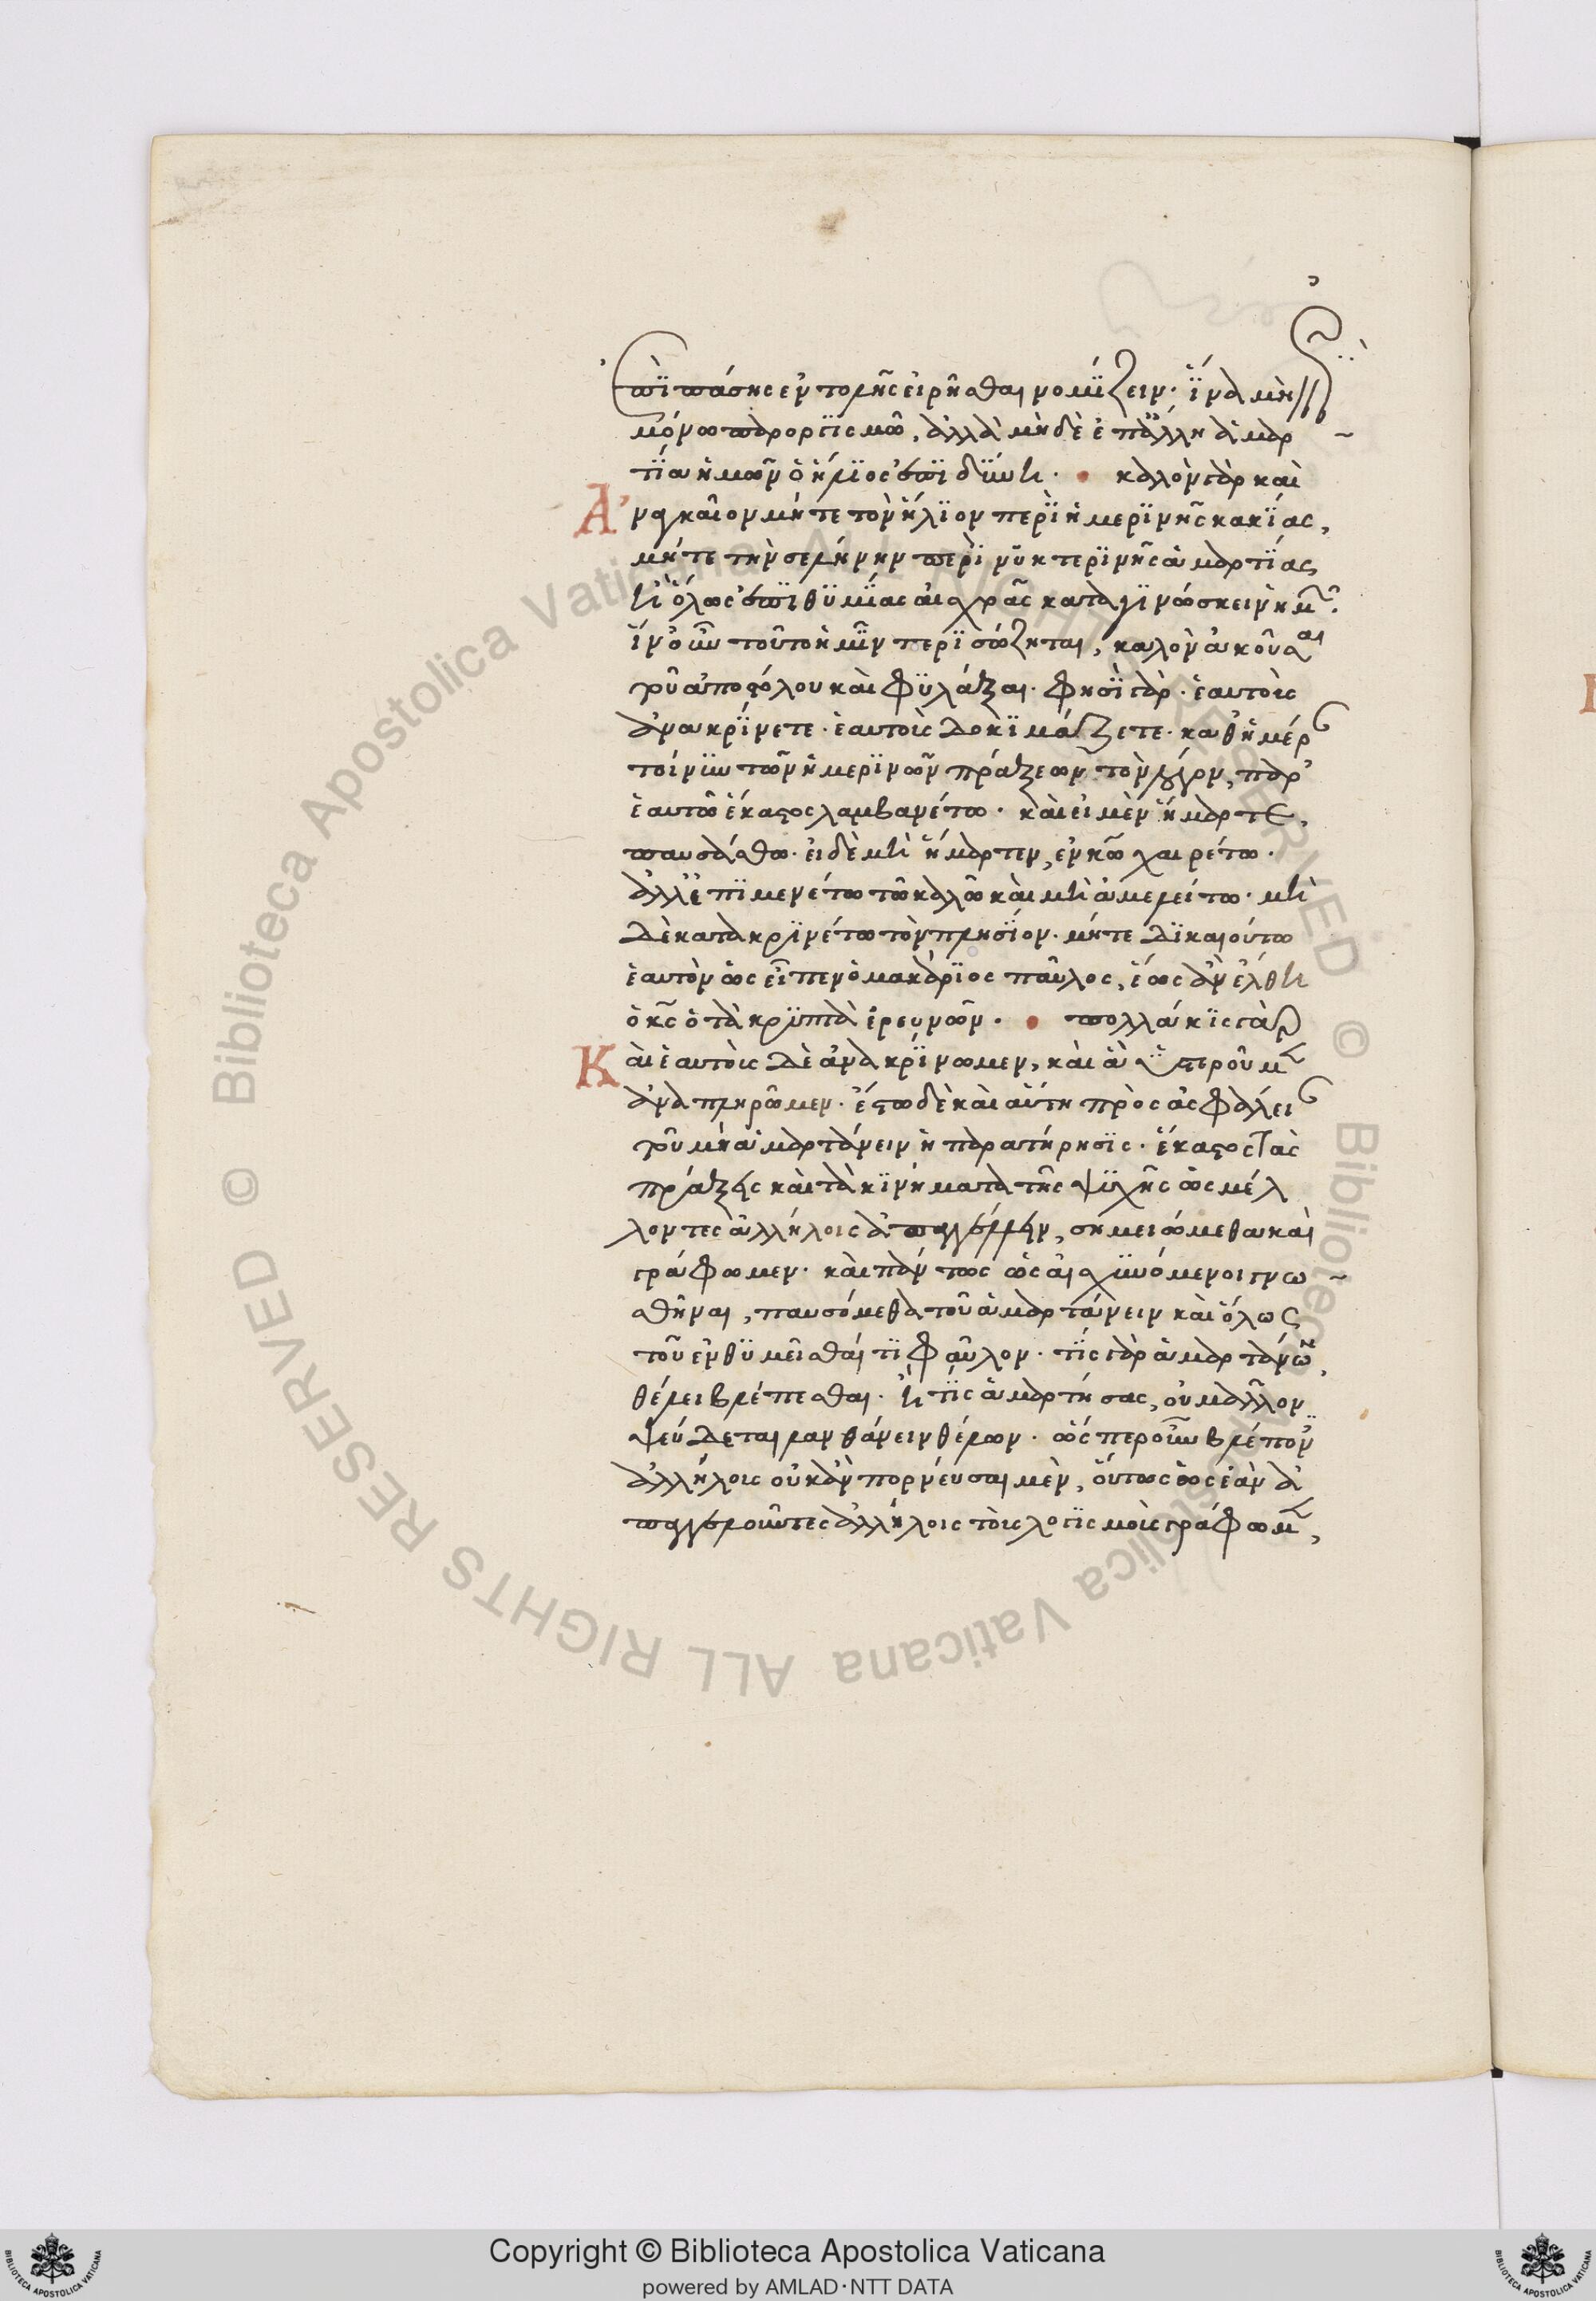 ἐπὶ πάσης ἐντολῆς εἰρῆσθαι νομίζειν· ἵνα μὴ
μόνω παροργισμῶ, ἀλλὰ μηδὲ ἐπ' ἄλλη ἁμαρ
τία ἡμῶν ὁ ἥλιος ἐπιδύνη· καλὸν γὰρ καὶ
Ἀναγκαῖον μήτε τὸν ἥλιον περὶ ἡμερινῆς κακίας,
μήτε τὴν σελήνην περὶ νυκτερινῆς ἁμαρτίας
ἢ ὅλως ἐπιθυμίας αἰσχρᾶς καταγινώσκειν ἡμ
ἵν' οὖν τοῦτο ἡμῖν περισώζηται, καλὸν ἀκοῦσαι
τοῦ ἀποστόλου καὶ φυλάξαι· φησὶ γὰρ· ἑαυτοὺς
ἀνακρίνετε· ἑαυτοὺς δοκιμάζετε· καθ' ἡμέρ
τοίνυν τῶν ἡμερινῶν πράξεων τὸν λόγον, παρ'
ἑαυτῶ ἕκαστος λαμβανέτω· καὶ εἰ μὲν ἥμαρτε,
παυσάσθω· εἰ δὲ μὴ ἥμαρτεν, ἐγκω χαιρέτω·
ἀλλ' ἐπιμενέτω τῶ καλῶ καὶ μὴ ἀμελείτω· μὴ
δὲ κατακρινέτω τὸν πλησίον· μήτε δικαιούτω
ἑαυτὸν ὡς εἶπεν ὁ μακάριος παῦλος, ἕως ἂν ἔλθη
ὁ κς ὁ τὰ κρυπτὰ ἐρευνῶν· πολλάκις γὰρ
Καὶ ἑαυτοὺς δὲ ἀνακρίνωμεν, καὶ ἃ ὑστεροῦμ
ἀναπληρῶμεν· ἔστω δὲ καὶ αὕτη πρὸς ἀσφάλει
τοῦ μὴ ἁμαρτάνειν ἡ παρατήρησις· ἕκαστος τὰς
πράξεις καὶ τὰ κινήματα τῆς ψυχῆς ὡς μέλ
λοντες ἀλλήλοις ἀπαγγέλλειν, σημειώμεθα καὶ
γράφωμεν· καὶ πάντως ὡς αἰσχυνόμενοι γνω
σθῆναι, παυσόμεθα τοῦ ἁμαρτάνειν καὶ ὅλως
τοῦ ἐνθυμεῖσθαί τι φαῦλον· τίς γὰρ ἁμαρτάνων
θέλει βλέπεσθαι· ἢ τίς ἁμαρτήσας, οὐ μᾶλλον
ψεύδεται λανθάνειν θέλων· ὥσπερ οὖν βλέπον
ἀλλήλους οὐκ ἂν πορνεύσαιμεν, οὕτως ὡς ἐὰν ἀ
παγγελοῦντες ἀλλήλοις τοὺς λογισμοὺς γράφωμ,